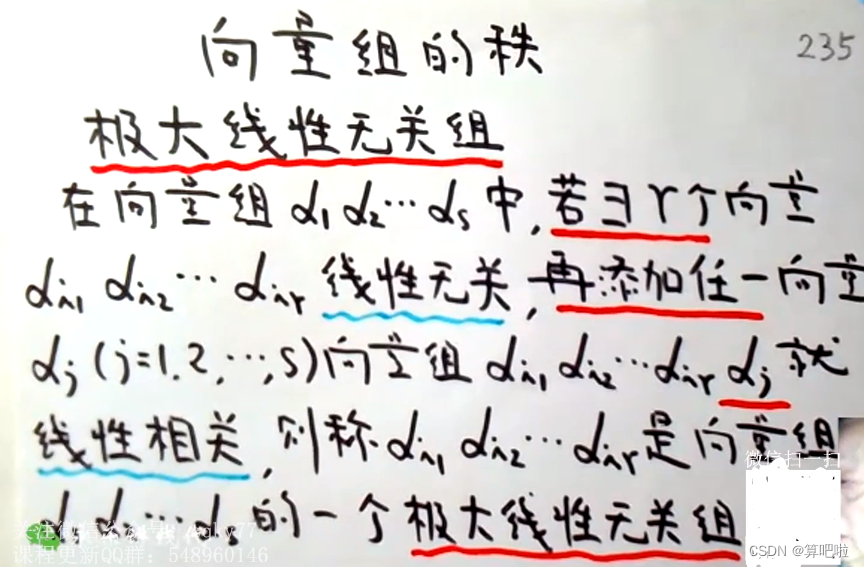 向量组的秩
235
极大线性无关组
在向量组 α₁ α₂ ⋯ αₛ 中,若∃ r个向量
αᵢ₁ αᵢ₂ ⋯ αᵢᵣ 线性无关,再添加任一向量
αⱼ (j=1,2,⋯,s)向量组 αᵢ₁ αᵢ₂ ⋯ αᵢᵣ αⱼ 就
线性相关,则称 αᵢ₁ αᵢ₂ ⋯ αᵢᵣ 是向量组
的一个极大线性无关组
微信扫一扫
关注微信
课程更新QQ群:548960146
CSDN @算吧啦